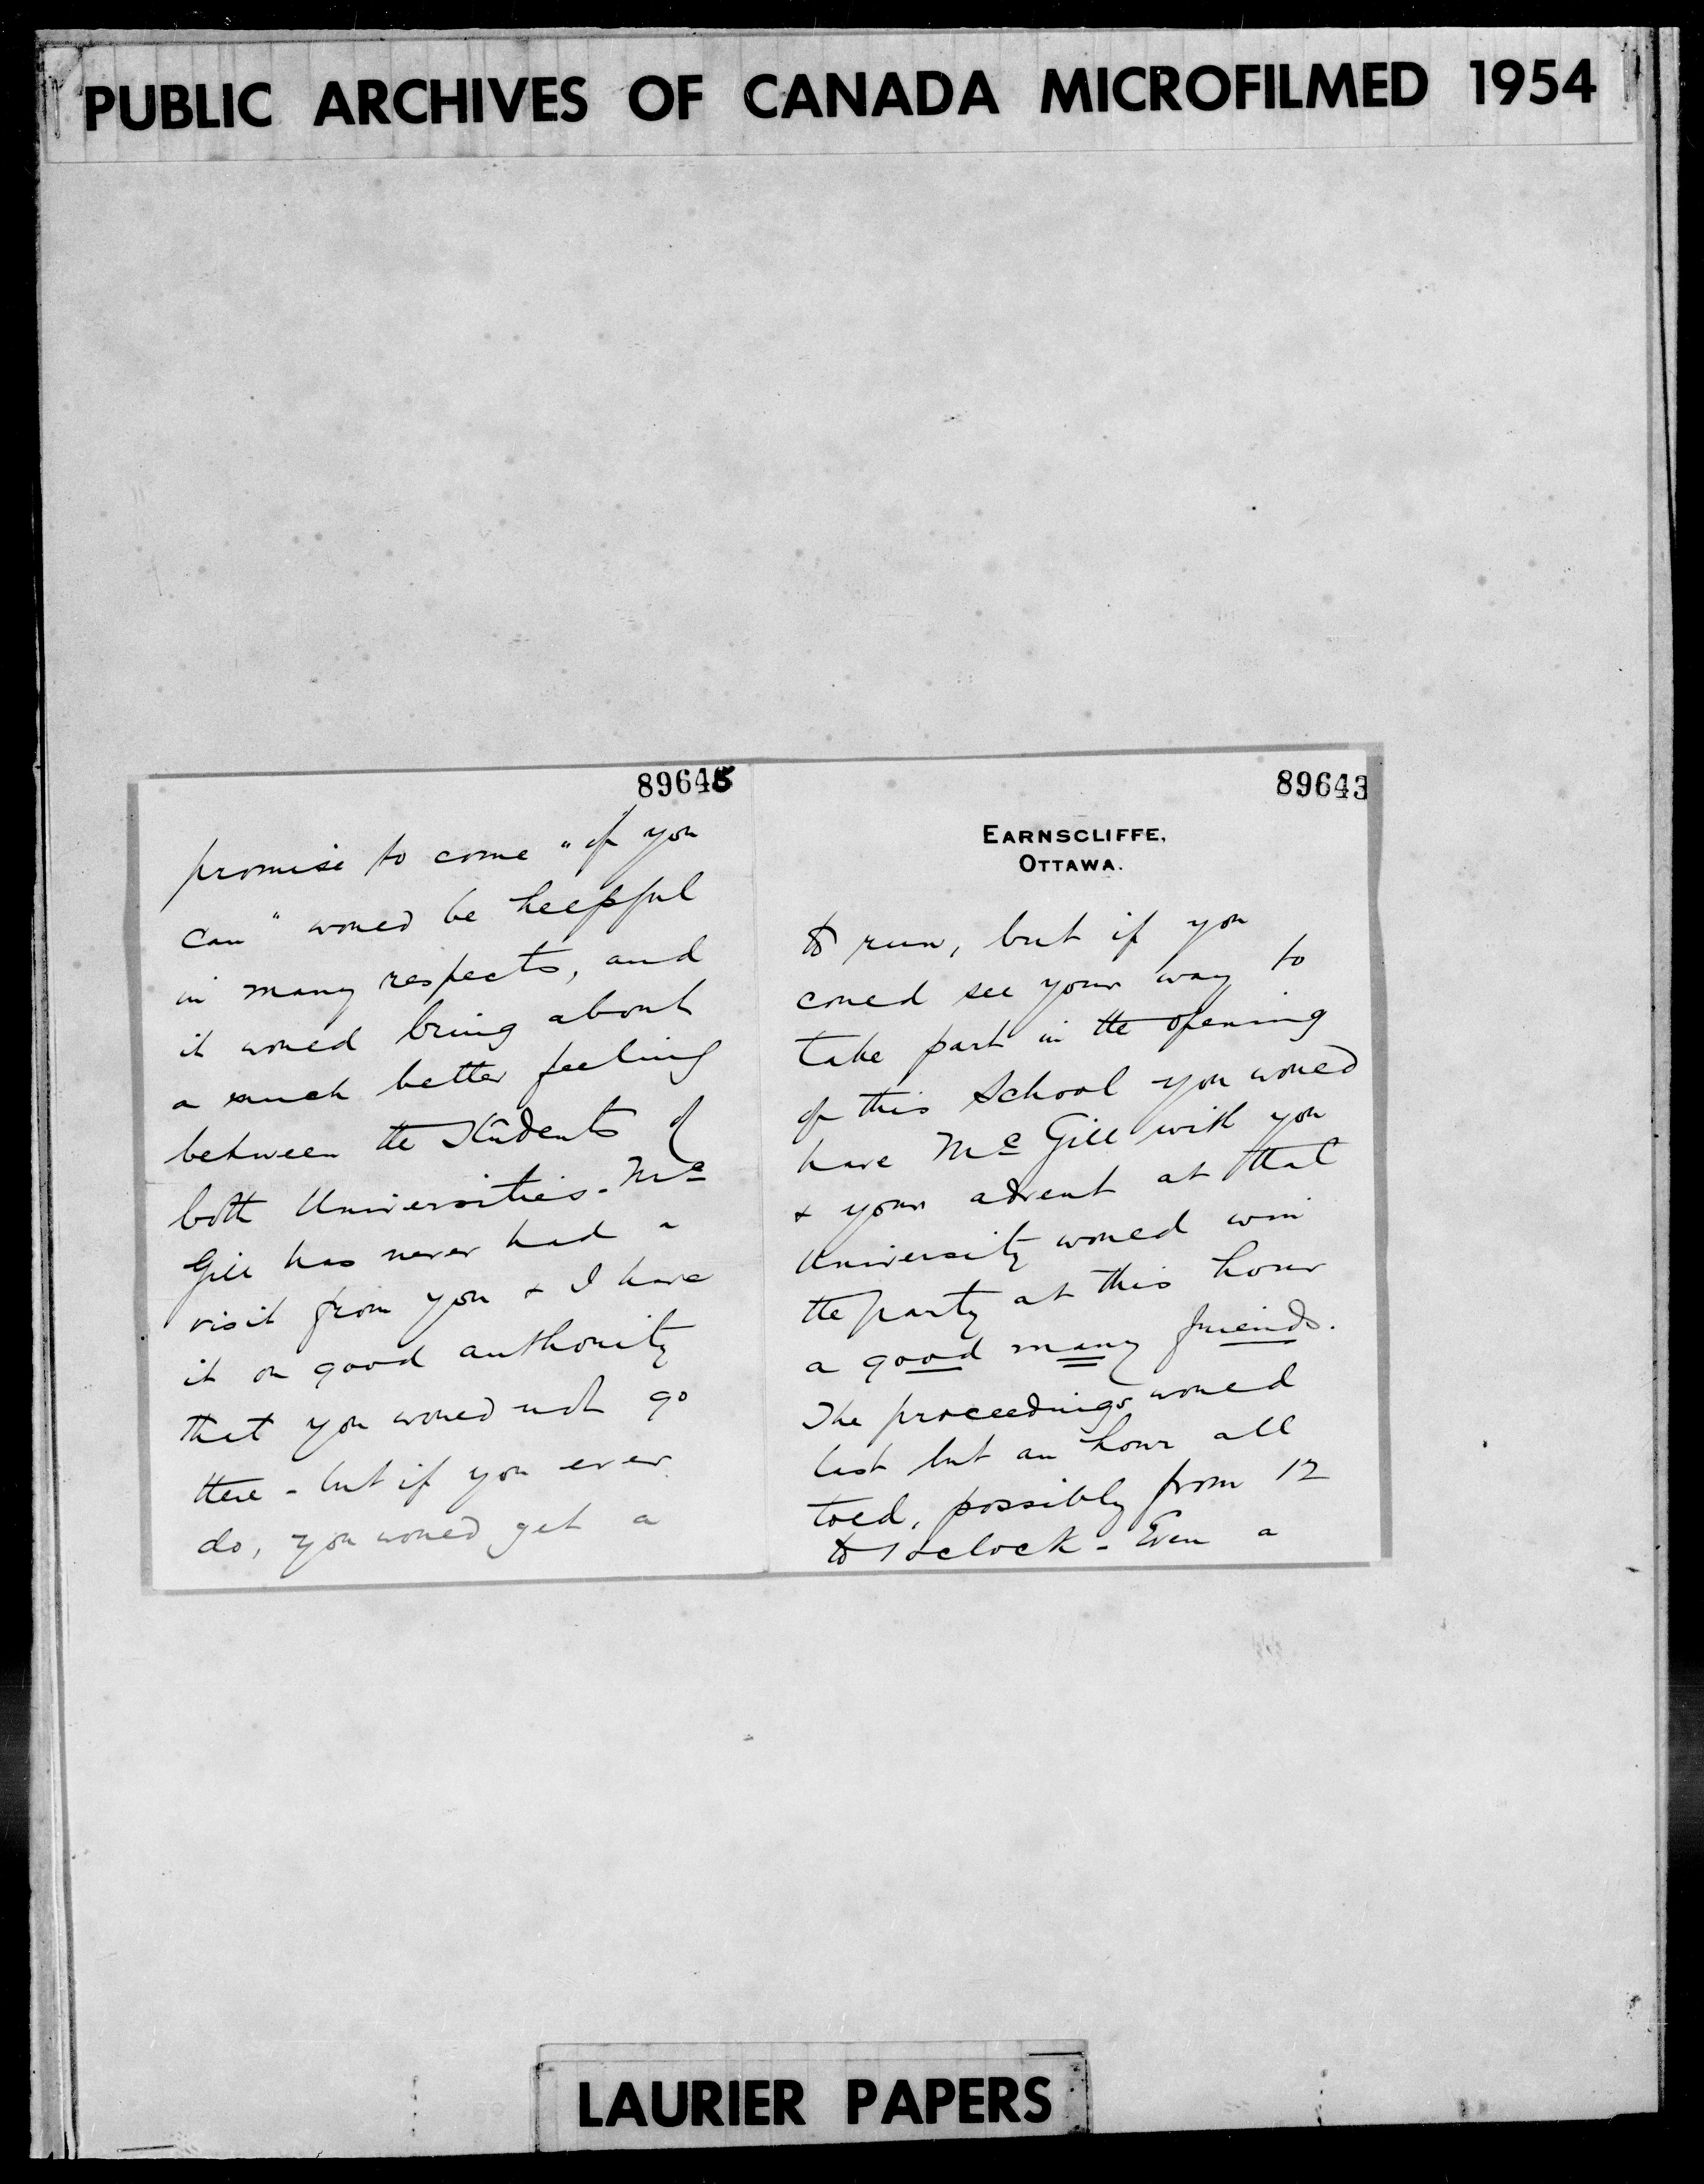 PUBLIC ARCHIVES OF CANADA MICROFILMED 1954
89645
promise to come "if you
can" would be helpful
in many respects, and
it would bring about
a much better feeling
between the Students of
both Universities - Mc
Gill has never had a
visit from you & I have
it on good authority
that you would not go
there - but if you ever
do, you would get a
89643
EARNSCLIFFE,
OTTAWA.
to run, but if you
could see your way to
take part in the opening
of this School you would
have McGill with you
& your advent at that
University would win
the party at this hour
a good many friends.
The proceedings would
last but an hour all
told, possibly from 12
to 1 oclock - Even a
LAURIER PAPERS